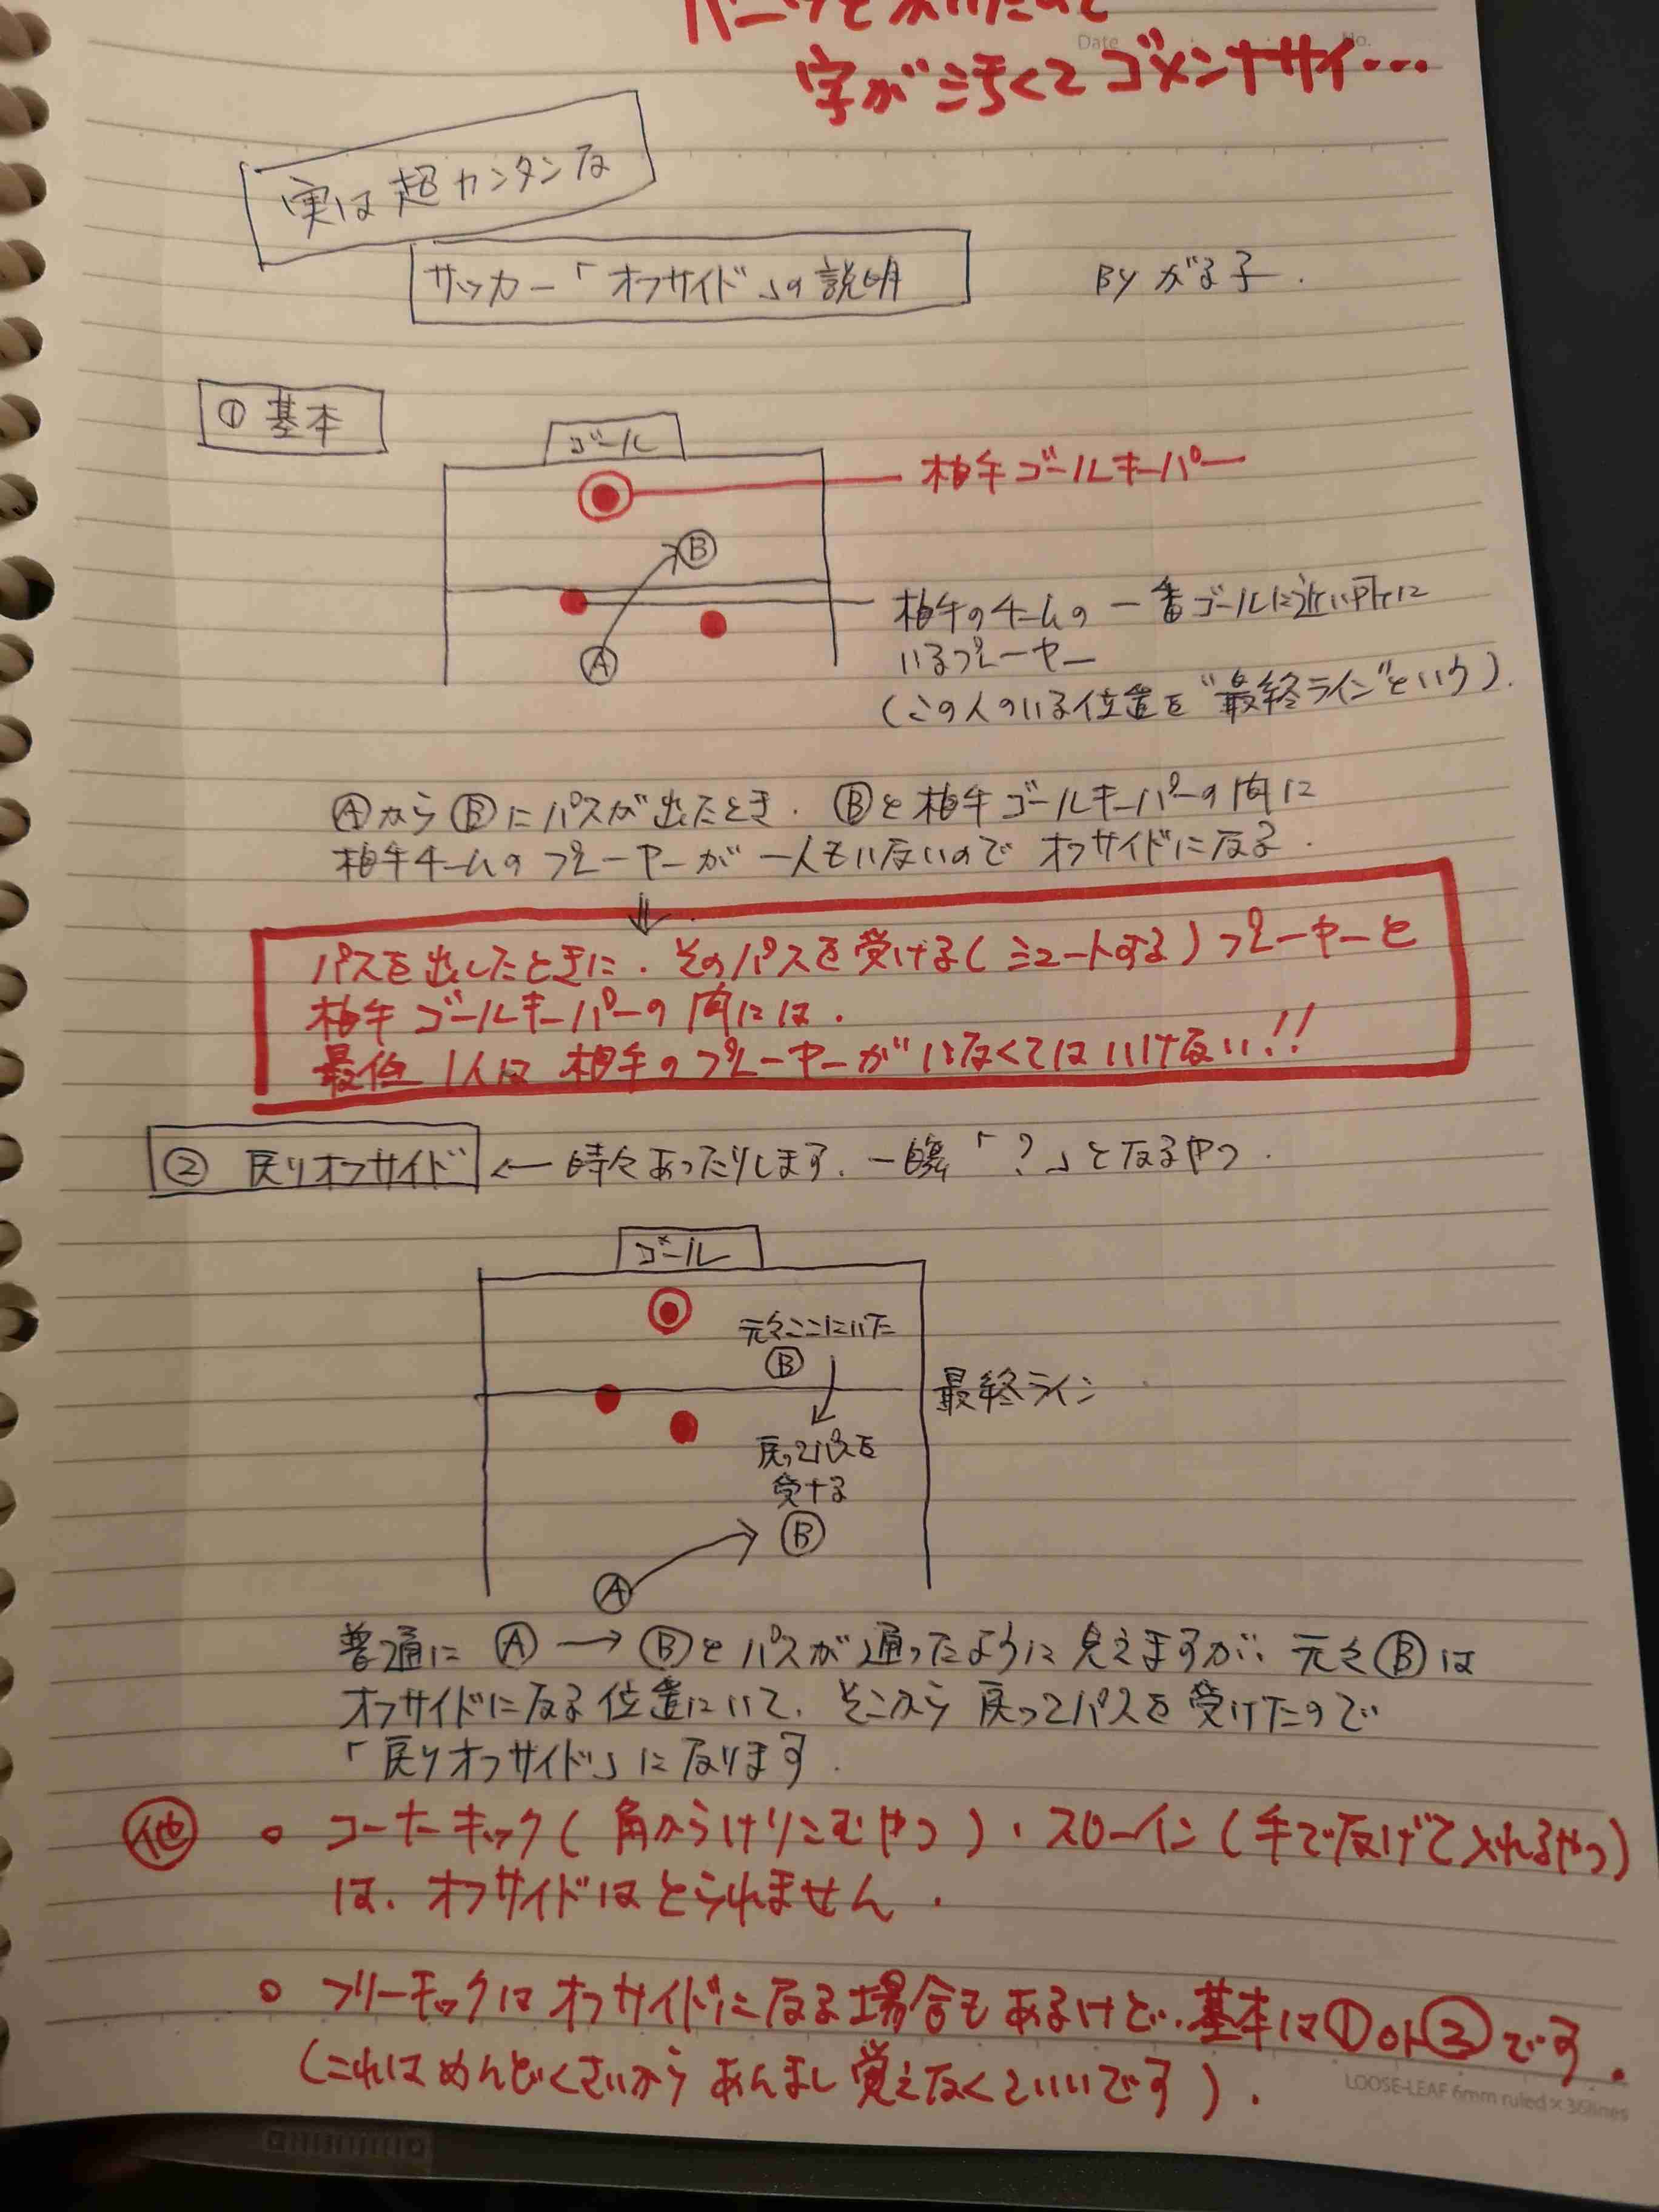 字が汚くてゴメンナサイ…
Date
No.
実は超カンタンな
サッカー「オフサイド」の説明
BY がる子.
① 基本
ゴール
相手ゴールキーパー
B
相手のチームの一番ゴールに近い所に
いるプレーヤー
A
(この人のいる位置を"最終ライン"という).
ⒶからⒷにパスが出たとき、Ⓑと相手ゴールキーパーの間に
相手チームのプレーヤーが一人もいないのでオフサイドになる.
パスを出したときに、そのパスを受ける(シュートする)プレーヤーと
相手ゴールキーパーの間には、
最低1人は相手のプレーヤーがいなくてはいけない!!
② 戻りオフサイド ← 時々あったりします。一瞬「?」となるやつ.
ゴール
元々ここにいた
B
最終ライン
戻ってパスを
受ける
B
A
普通に Ⓐ → Ⓑとパスが通ったように見えますが、元々Ⓑは
オフサイドになる位置にいて、そこから戻ってパスを受けたので
「戻りオフサイド」になります.
他 ○ コーナーキック(角からけりこむやつ)・スローイン(手で投げて入れるやつ)
は、オフサイドはとられません.
○ フリーキックはオフサイドになる場合もあるけど、基本は①or②です.
(これはめんどくさいからあんまし覚えなくていいです).
LOOSE-LEAF 6mm ruled × 36lines